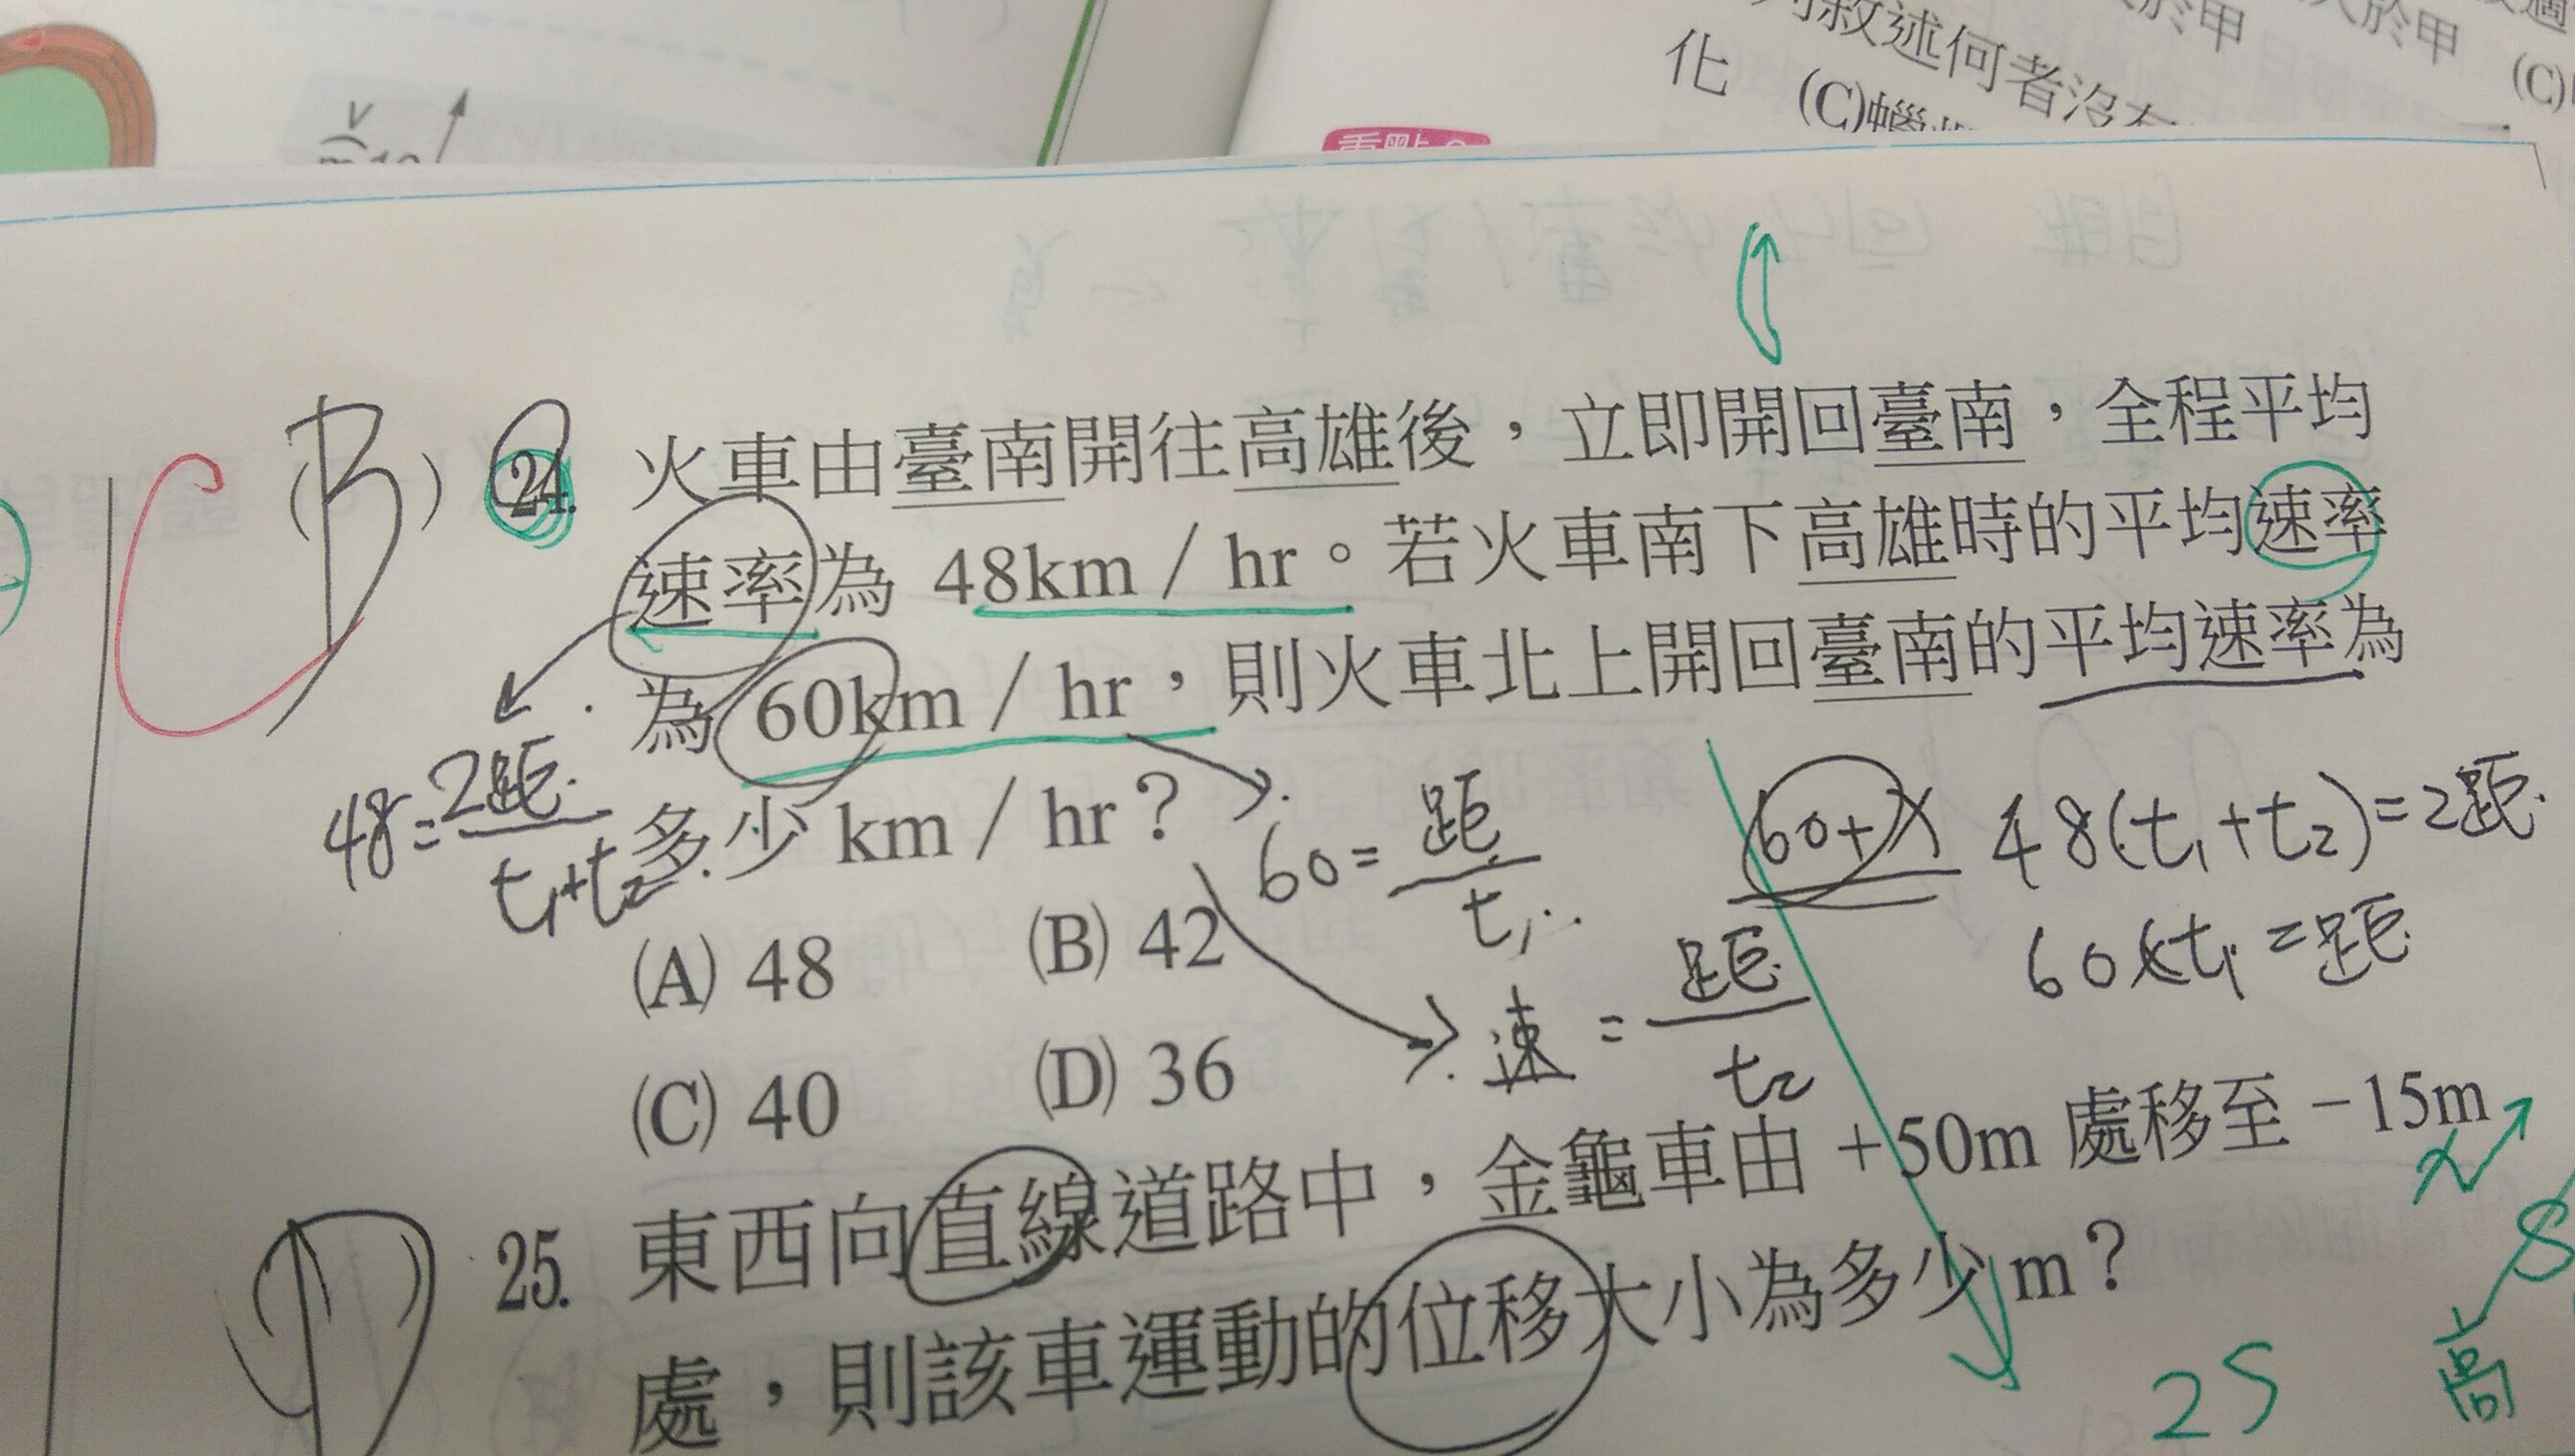 列敘述何者沒有
化 (C)
於甲
於甲
(C)
V
C
(B) 24. 火車由臺南開往高雄後，立即開回臺南，全程平均
速率為 48km / hr。若火車南下高雄時的平均速率
為 60km / hr，則火車北上開回臺南的平均速率為
多少 km / hr？
48=2距/t₁+t₂
60=距/t₁
60+x
48(t₁+t₂)=2距
60×t₁=距
速=距/t₂
(A) 48 (B) 42
(C) 40 (D) 36
(D) 25. 東西向直線道路中，金龜車由 +50m 處移至 −15m
處，則該車運動的位移大小為多少 m？
2S
S
高